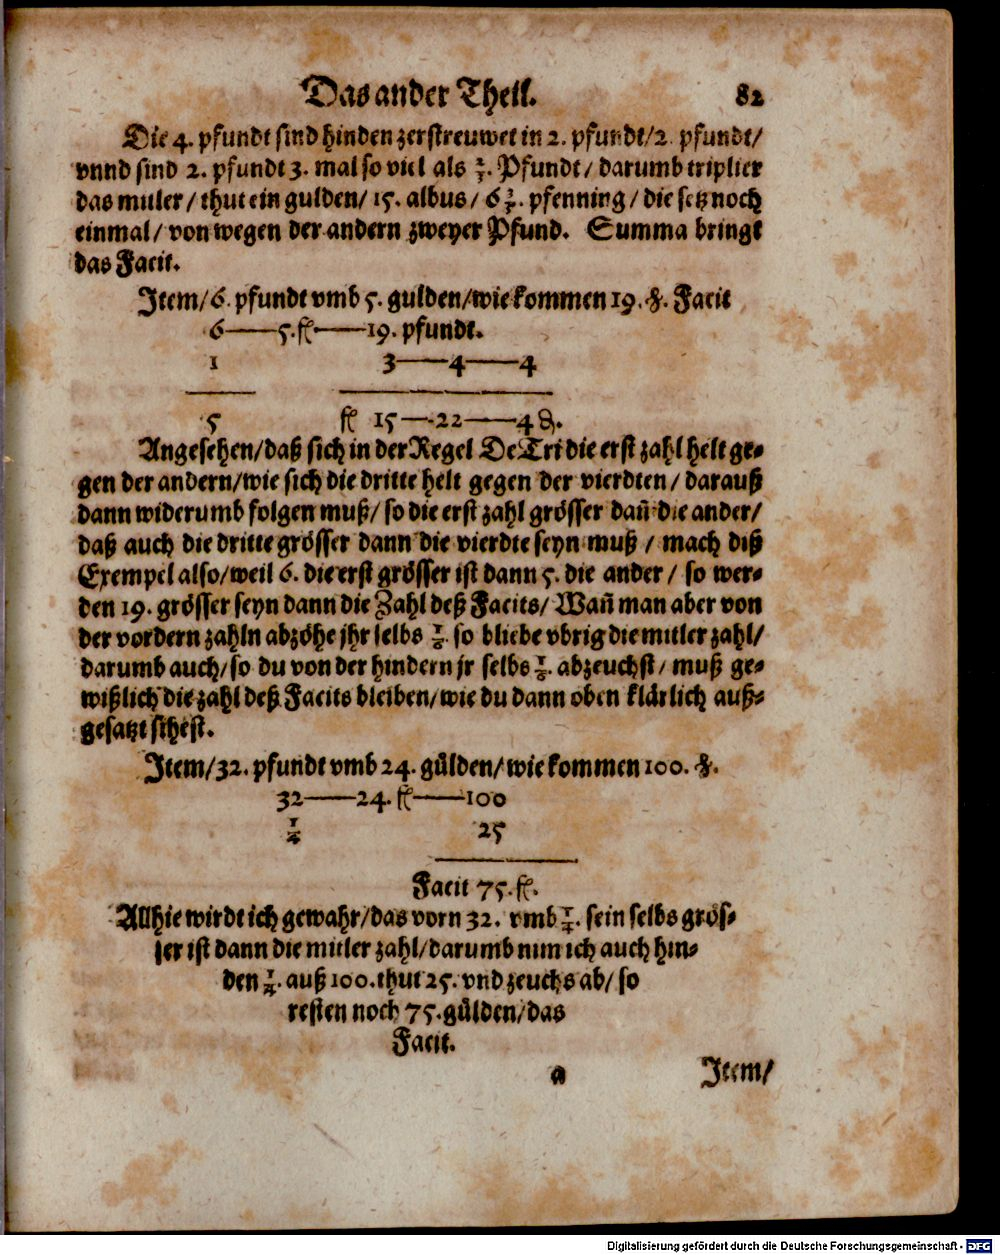 Das ander Theil. 82
Die 4. pfundt sind hinden zerstreuwet in 2. pfundt/2. pfundt/
vnnd sind 2. pfundt 3. mal so viel als ⅔. Pfundt/ darumb triplier
das mitler/ thut ein gulden/ 15. albus/ 6 ⅔. pfenning/ die setz noch
einmal/ von wegen der andern zweyer Pfund. Summa bringt
das Facit.
Item/6. pfundt vmb 5. gulden/wie kommen 19. ℔. Facit
6——5. fl——19. pfundt.
1 3——4——4
5 fl 15—22——4 ₰.
Angesehen/daß sich in der Regel De Tri die erst zahl helt ge-
gen der andern/wie sich die dritte helt gegen der vierdten/ darauß
dann widerumb folgen muß/ so die erst zahl grösser dañ die ander/
daß auch die dritte grösser dann die vierdte seyn muß / mach diß
Exempel also/weil 6. die erst grösser ist dann 5. die ander / so wer-
den 19. grösser seyn dann die Zahl deß Facits/ Wañ man aber von
der vordern zahln abzöhe jhr selbs ⅙. so bliebe vbrig die mitler zahl/
darumb auch/so du von der hindern jr selbs ⅙. abzeuchst/ muß ge-
wißlich die zahl deß Facits bleiben/wie du dann oben klärlich auß-
gesatzt sihest.
Item/32. pfundt vmb 24. gülden/wie kommen 100. ℔.
32——24. fl——100
¼ 25
Facit 75. fl.
Allhie wirdt ich gewahr/das vorn 32. vmb ¼. sein selbs grös-
ser ist dann die mitler zahl/darumb nim ich auch hin-
den ¼. auß 100. thut 25. vnd zeuchs ab/ so
resten noch 75. gülden/das
Facit.
a Item/
Digitalisierung gefördert durch die Deutsche Forschungsgemeinschaft - DFG